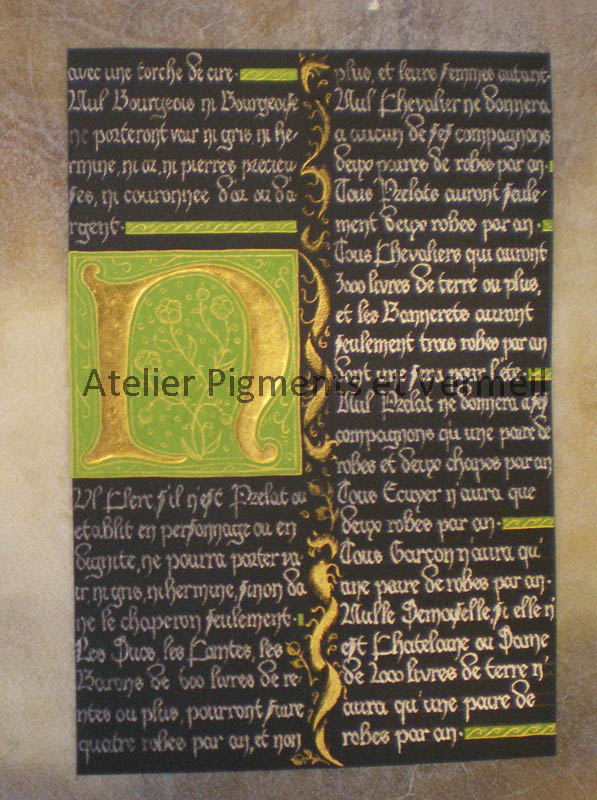 avec une torche de cire.
Nul Bourgeois ni Bourgeoise
ne porteront vair ni gris, ni he-
rmine, ni or, ni pierres precieu
ses, ni couronnee d'or ou d'a
rgent.
N
Ul Clerc s'il n'est Prelat ou
etablit en personnage ou en
dignite, ne pourra porter va
ir, ni gris, ni hermine, sinon da
ne le chaperon seulement.
Les Ducs, les Comtes, les
Barons de 600 livres de re-
ntes ou plus, pourront faire
quatre robes par an, et non
plus, et leurs femmes autant.
Nul Chevalier ne donnera
a aucun de ses compagnons
deux paires de robes par an.
Tous Prelats auront seule-
ment deux robes par an.
Tous Chevaliers qui auront
3000 livres de terre ou plus,
et les Bannerets auront
seulement trois robes par an
dont une sera pour l'été.
Nul Prelat ne donnera a ses
compagnons qu'une paire de
robes et deux chapes par an
Tous Ecuyer n'aura que
deux robes par an.
Tous Garçon n'aura qu'
une paire de robes par an.
Nulle Demoiselle, si elle n'
est Chatelaine ou Dame
de 2000 livres de terre n'
aura qu'une paire de
robes par an.
Atelier Pigments et vermeil